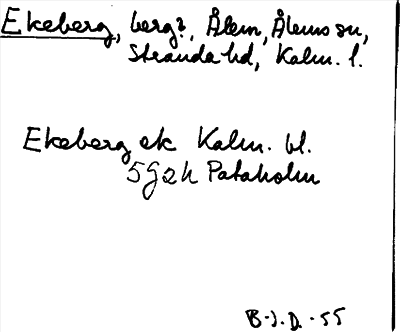 Ekeberg, berg?, Ålem, Ålems sn,
Stranda hd, Kalm. l.
Ekeberg ek Kalm. bl.
5G2h Pataholm
B-J.D. -55